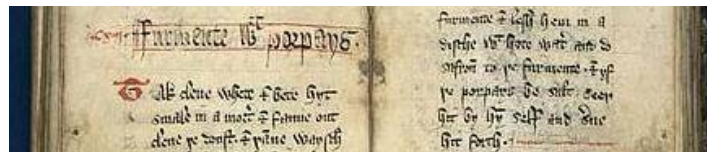 Furmente wt porpays.
Tak clene whete & bete hyt
smale in a morter & fanne out
clene þe doust. & þanne waysch
furmente & lesh hem in a
disshe wt hote water and do
safron to þe furmente. & yf
þe porpays be salt. seeþ
hit by hym self and serue
hit forth.